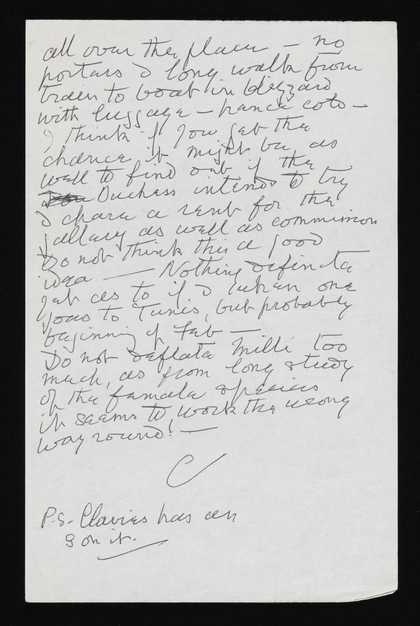 all over the place — no
porters & long walk from
train to boat in blizzard
with luggage — hence colo —
I think if you get the
chance it might be as
well to find out if the
Duchess intends to try
& charge a rent for the
gallery as well as commission
Do not think this a good
idea — Nothing definite
yet as to if & when one
goes to Tunis, but probably
beginning of Feb —
Do not deflate Milli too
much, as from long study
of the female species
it seems to work the wrong
way round! —
C
P.S. Clavies has an
S on it.